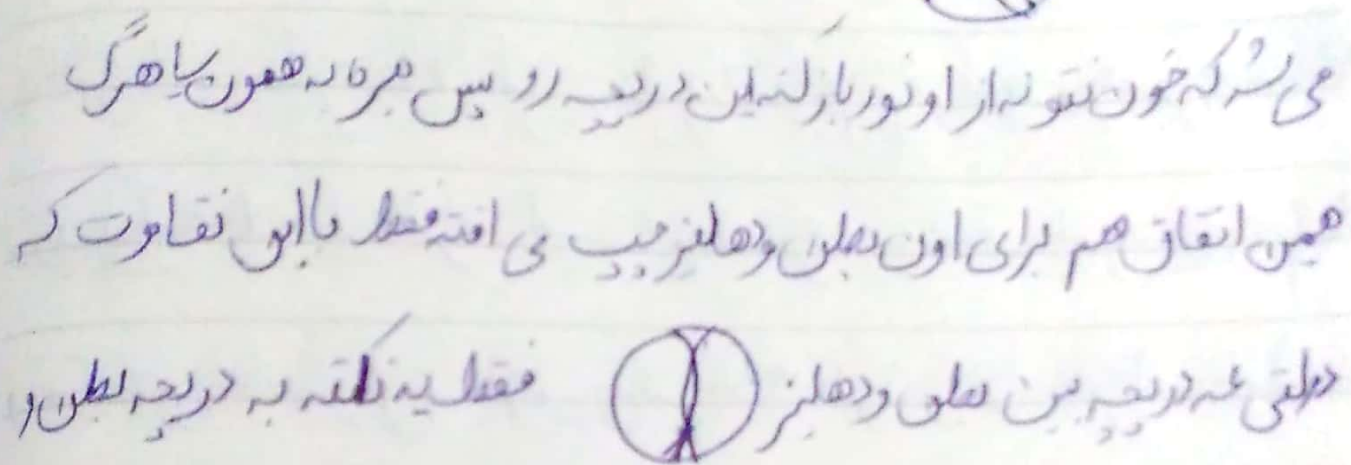 می شه که خون نتونه از اونور باز کنه این دریچه رو پس میره به همون سیاهرگ
همین اتفاق هم برای اون بطن و دهلیز چپ می افته فقط با این تفاوت که
دولتی عه دریچه بین بطن و دهلیز فقط یه نکته به دریچه بطن و